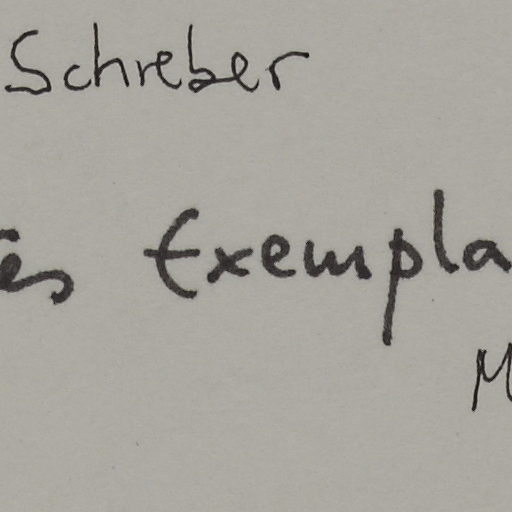 Schreber
es Exempla
M